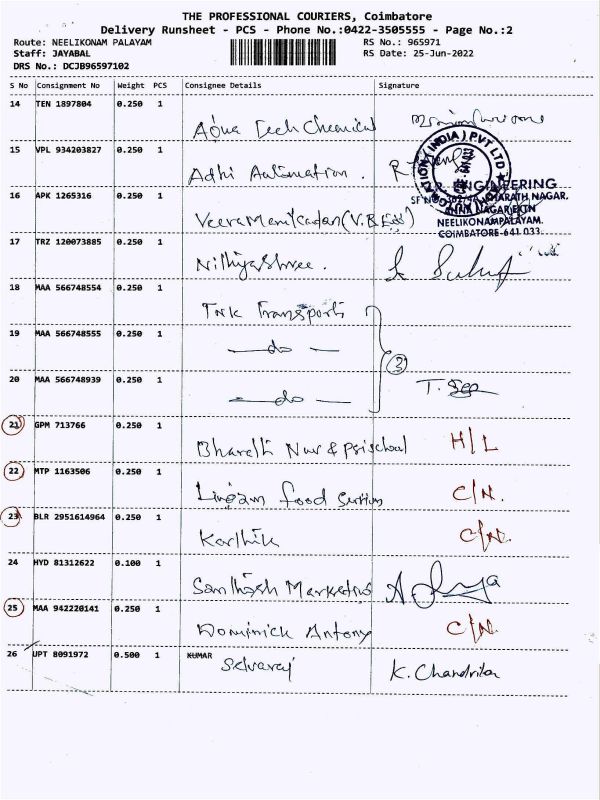 THE PROFESSIONAL COURIERS, Coimbatore
Delivery Runsheet - PCS - Phone No.:0422-3505555 - Page No.:2
Route: NEELIKONAM PALAYAM RS No.: 965971
Staff: JAYABAL RS Date: 25-Jun-2022
DRS No.: DCJB96597102
S No Consignment No Weight PCS Consignee Details Signature
14 TEN 1897804 0.250 1
Aqua Tech Chemical
15 VPL 934203827 0.250 1
Adhi Automation.
16 APK 1265316 0.250 1
Veera Manikadan (V.B
(INDIA) PVT LTD
ENGINEERING
BHARATH NAGAR,
ANNA NAGAR EXTN
NEELIKONAMPALAYAM,
COIMBATORE-641 033.
17 TRZ 120073885 0.250 1
Nithyashree.
18 MAA 566748554 0.250 1
TNK Transports
19 MAA 566748555 0.250 1
— do —
3
20 MAA 566748939 0.250 1
— do —
21 GPM 713766 0.250 1
Bharathi Nur & Prischool H/L
22 MTP 1163506 0.250 1
Lingam food C/N.
23 BLR 2951614964 0.250 1
Karthik C/N.
24 HYD 81312622 0.100 1
Santhosh Marketing
25 MAA 942220141 0.250 1
Dominick Antony C/N.
26 UPT 8091972 0.500 1 KUMAR
Selvaraj K. Chandrika